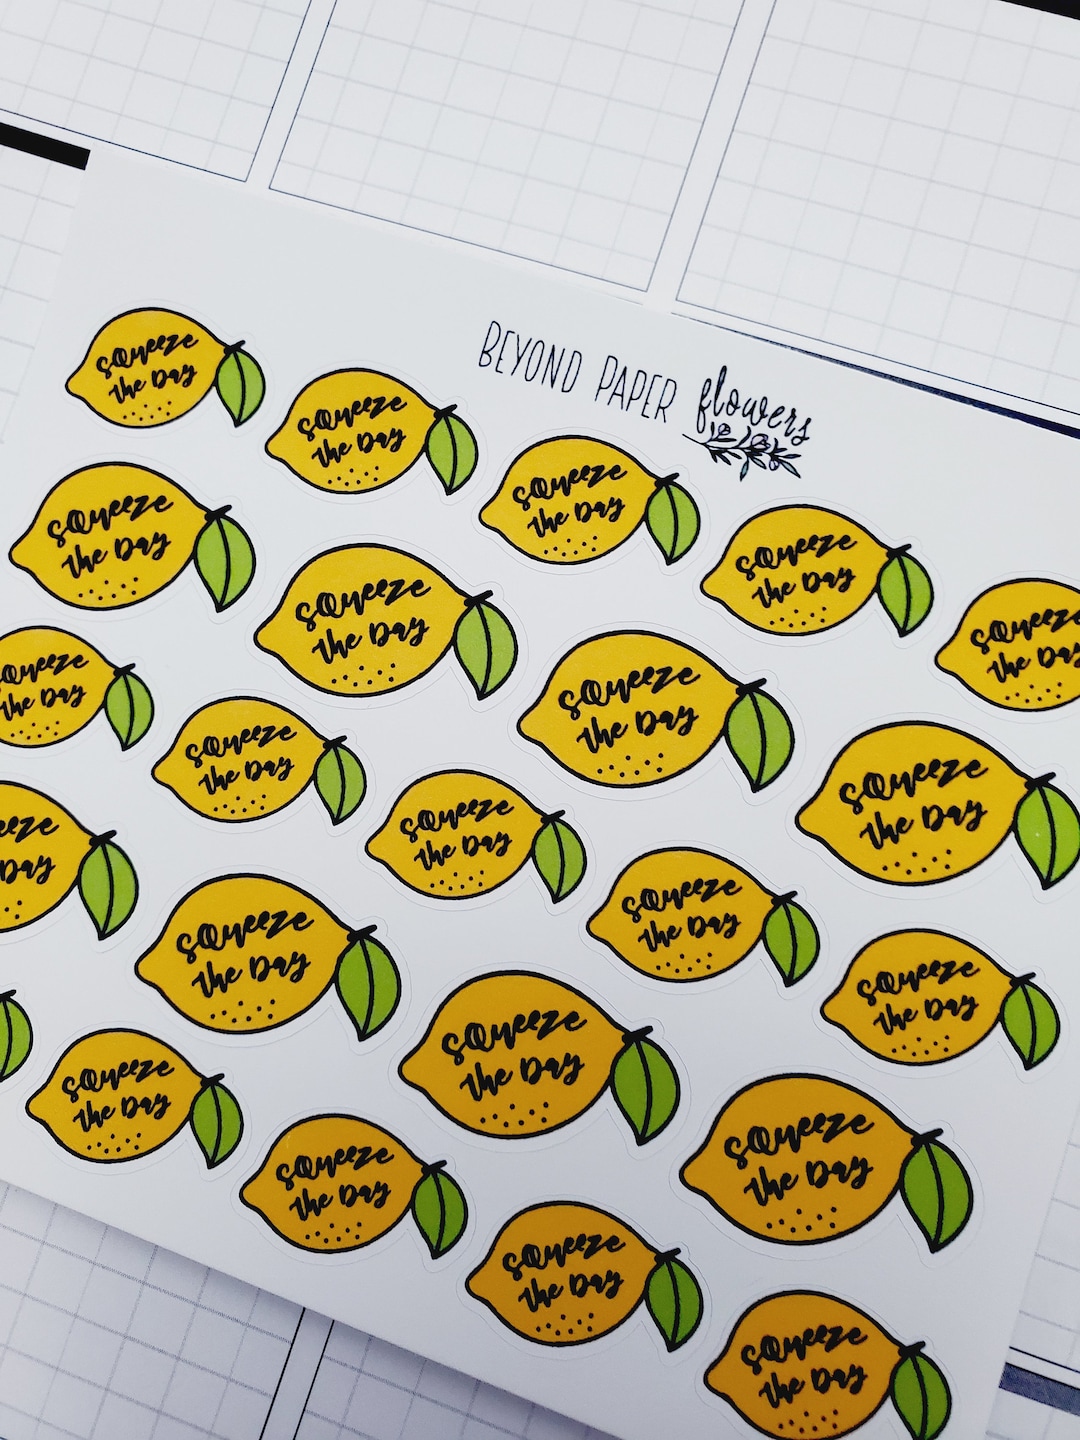 BEYOND PAPER flowers
squeeze
the Day
squeeze
the Day
squeeze
the Day
squeeze
the Day
squeeze
the Day
squeeze
the Day
squeeze
the Day
squeeze
the Day
squeeze
the Day
squeeze
the Day
squeeze
the Day
squeeze
the Day
squeeze
the Day
squeeze
the Day
eeze
Day
squeeze
the Day
squeeze
the Day
squeeze
the Day
squeeze
the Day
squeeze
the Day
squeeze
the Day
squeeze
the Day